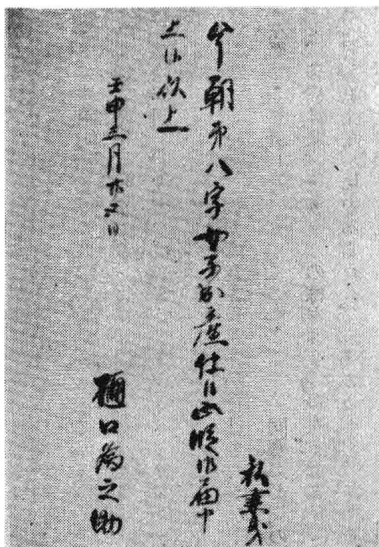 私妻義
今朝第八字女子出産仕候此段御届申
上候以上
壬申三月廿五日
樋口為之助